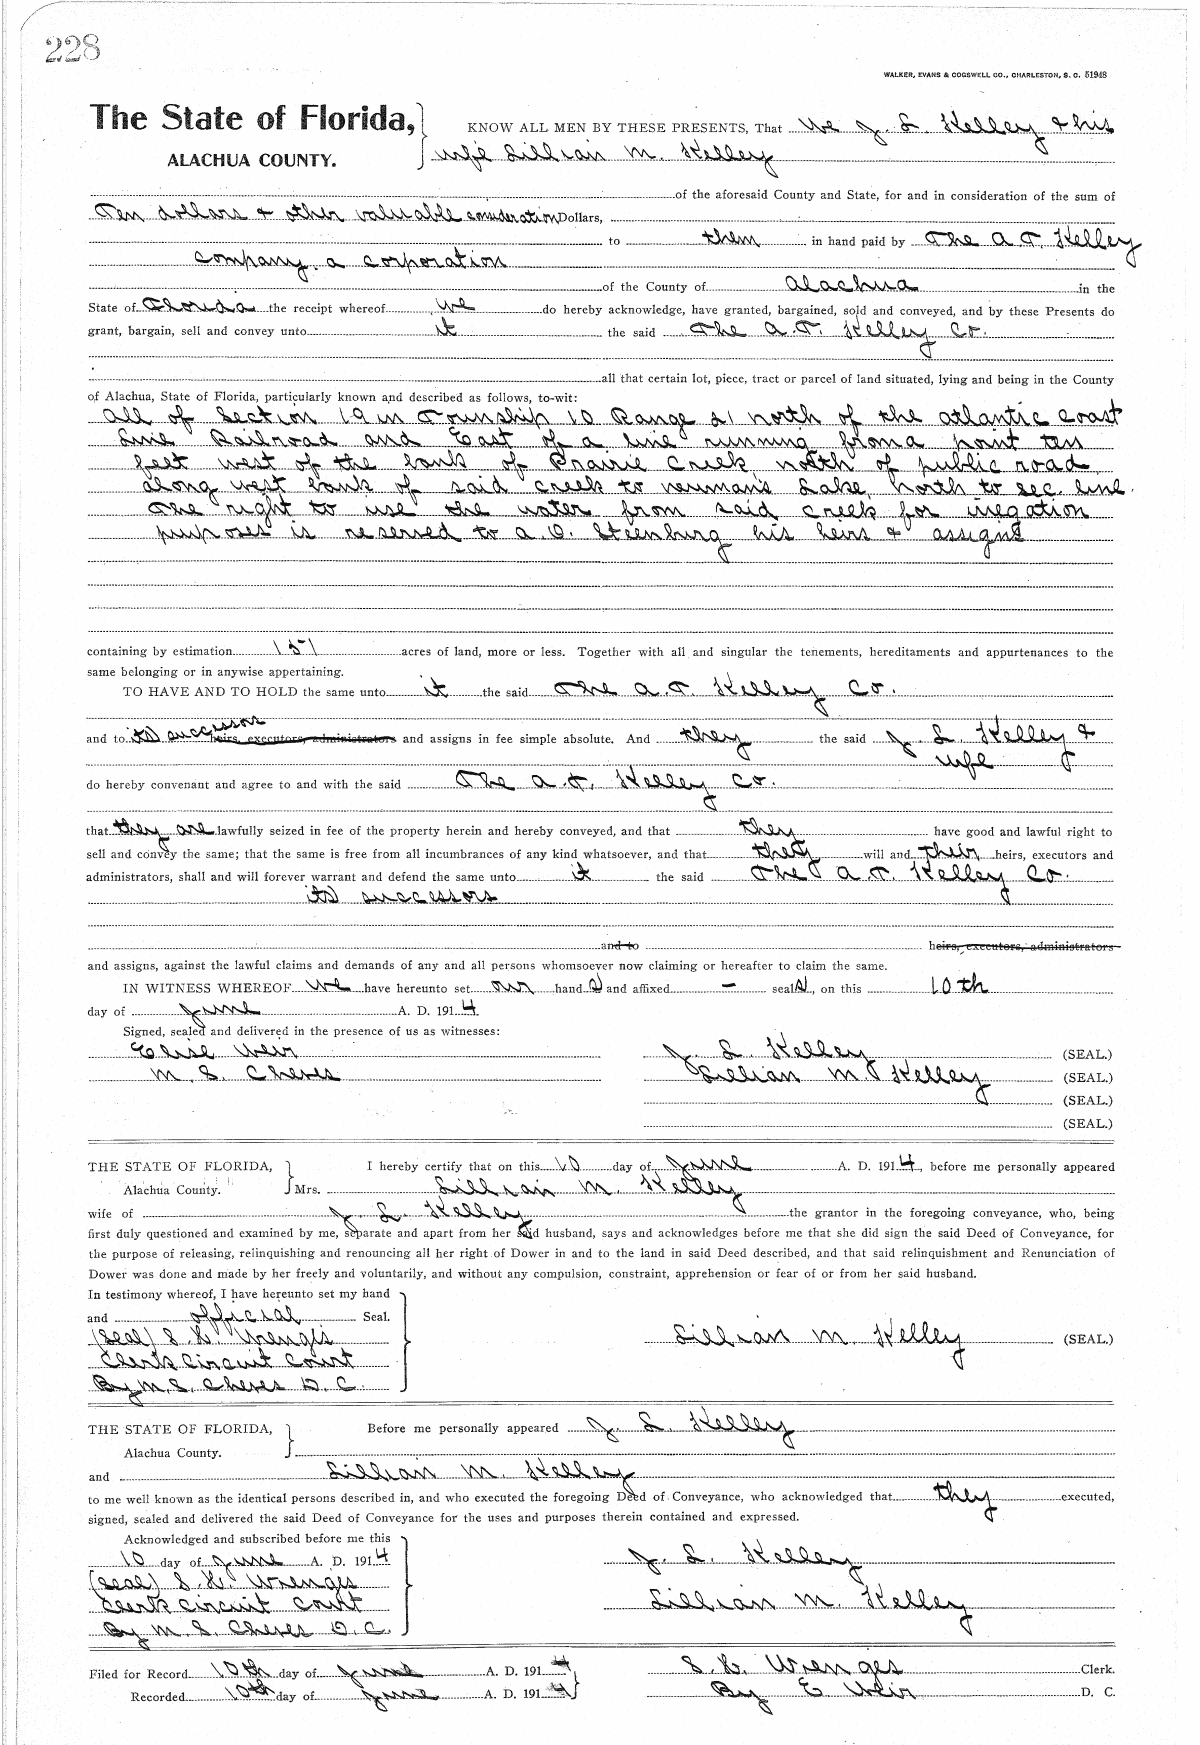 228
WALKER, EVANS & COGSWELL CO., CHARLESTON, S. C. 51948
The State of Florida, KNOW ALL MEN BY THESE PRESENTS, That We J. L. Kelley & his
ALACHUA COUNTY. wife Lillian M. Kelley
of the aforesaid County and State, for and in consideration of the sum of
Ten dollars & other valuable consideration Dollars,
to them in hand paid by The A. T. Kelley
Company, a corporation
of the County of Alachua in the
State of Florida the receipt whereof we do hereby acknowledge, have granted, bargained, sold and conveyed, and by these Presents do
grant, bargain, sell and convey unto it the said The A. T. Kelley Co.
all that certain lot, piece, tract or parcel of land situated, lying and being in the County
of Alachua, State of Florida, particularly known and described as follows, to-wit:
All of Section 19 in Township 10 Range 21 north of the Atlantic Coast
Line Railroad and East of a line running from a point ten
feet west of the bank of Prairie Creek north of public road
along west bank of said creek to Neuman's Lake, north to sec. line.
The right to use the water from said creek for irregation
purposes is reserved to A. O. Steenburg his heirs & assigns
containing by estimation 151 acres of land, more or less. Together with all and singular the tenements, hereditaments and appurtenances to the
same belonging or in anywise appertaining.
TO HAVE AND TO HOLD the same unto it the said The A. T. Kelley Co.
and to its successors heirs, executors, administrators and assigns in fee simple absolute. And they the said J. L. Kelley &
wife
do hereby convenant and agree to and with the said The A. T. Kelley Co.
that they are lawfully seized in fee of the property herein and hereby conveyed, and that they have good and lawful right to
sell and convey the same; that the same is free from all incumbrances of any kind whatsoever, and that they will and their heirs, executors and
administrators, shall and will forever warrant and defend the same unto it the said The A. T. Kelley Co.
its successors
and to heirs, executors, administrators
and assigns, against the lawful claims and demands of any and all persons whomsoever now claiming or hereafter to claim the same.
IN WITNESS WHEREOF we have hereunto set our hand s and affixed — seal s, on this 10th
day of June A. D. 1914.
Signed, sealed and delivered in the presence of us as witnesses:
Elise Weir J. L. Kelley (SEAL.)
M. S. Cheves Lillian M. Kelley (SEAL.)
(SEAL.)
(SEAL.)
THE STATE OF FLORIDA, I hereby certify that on this 10 day of June A. D. 1914, before me personally appeared
Alachua County. Mrs. Lillian M. Kelley
wife of J. L. Kelley the grantor in the foregoing conveyance, who, being
first duly questioned and examined by me, separate and apart from her said husband, says and acknowledges before me that she did sign the said Deed of Conveyance, for
the purpose of releasing, relinquishing and renouncing all her right of Dower in and to the land in said Deed described, and that said relinquishment and Renunciation of
Dower was done and made by her freely and voluntarily, and without any compulsion, constraint, apprehension or fear of or from her said husband.
In testimony whereof, I have hereunto set my hand
and official Seal.
(Seal) S. H. Wienges Lillian M. Kelley (SEAL.)
Clerk Circuit Court
By M. S. Cheves D. C.
THE STATE OF FLORIDA, Before me personally appeared J. L. Kelley
Alachua County.
and Lillian M. Kelley
to me well known as the identical persons described in, and who executed the foregoing Deed of Conveyance, who acknowledged that they executed,
signed, sealed and delivered the said Deed of Conveyance for the uses and purposes therein contained and expressed.
Acknowledged and subscribed before me this
10 day of June A. D. 1914 J. L. Kelley
(Seal) S. H. Wienges
Clerk Circuit Court Lillian M. Kelley
By M. S. Cheves D. C.
Filed for Record 10th day of June A. D. 1914 S. H. Wienges Clerk.
Recorded 10th day of June A. D. 1914 By E Weir D. C.